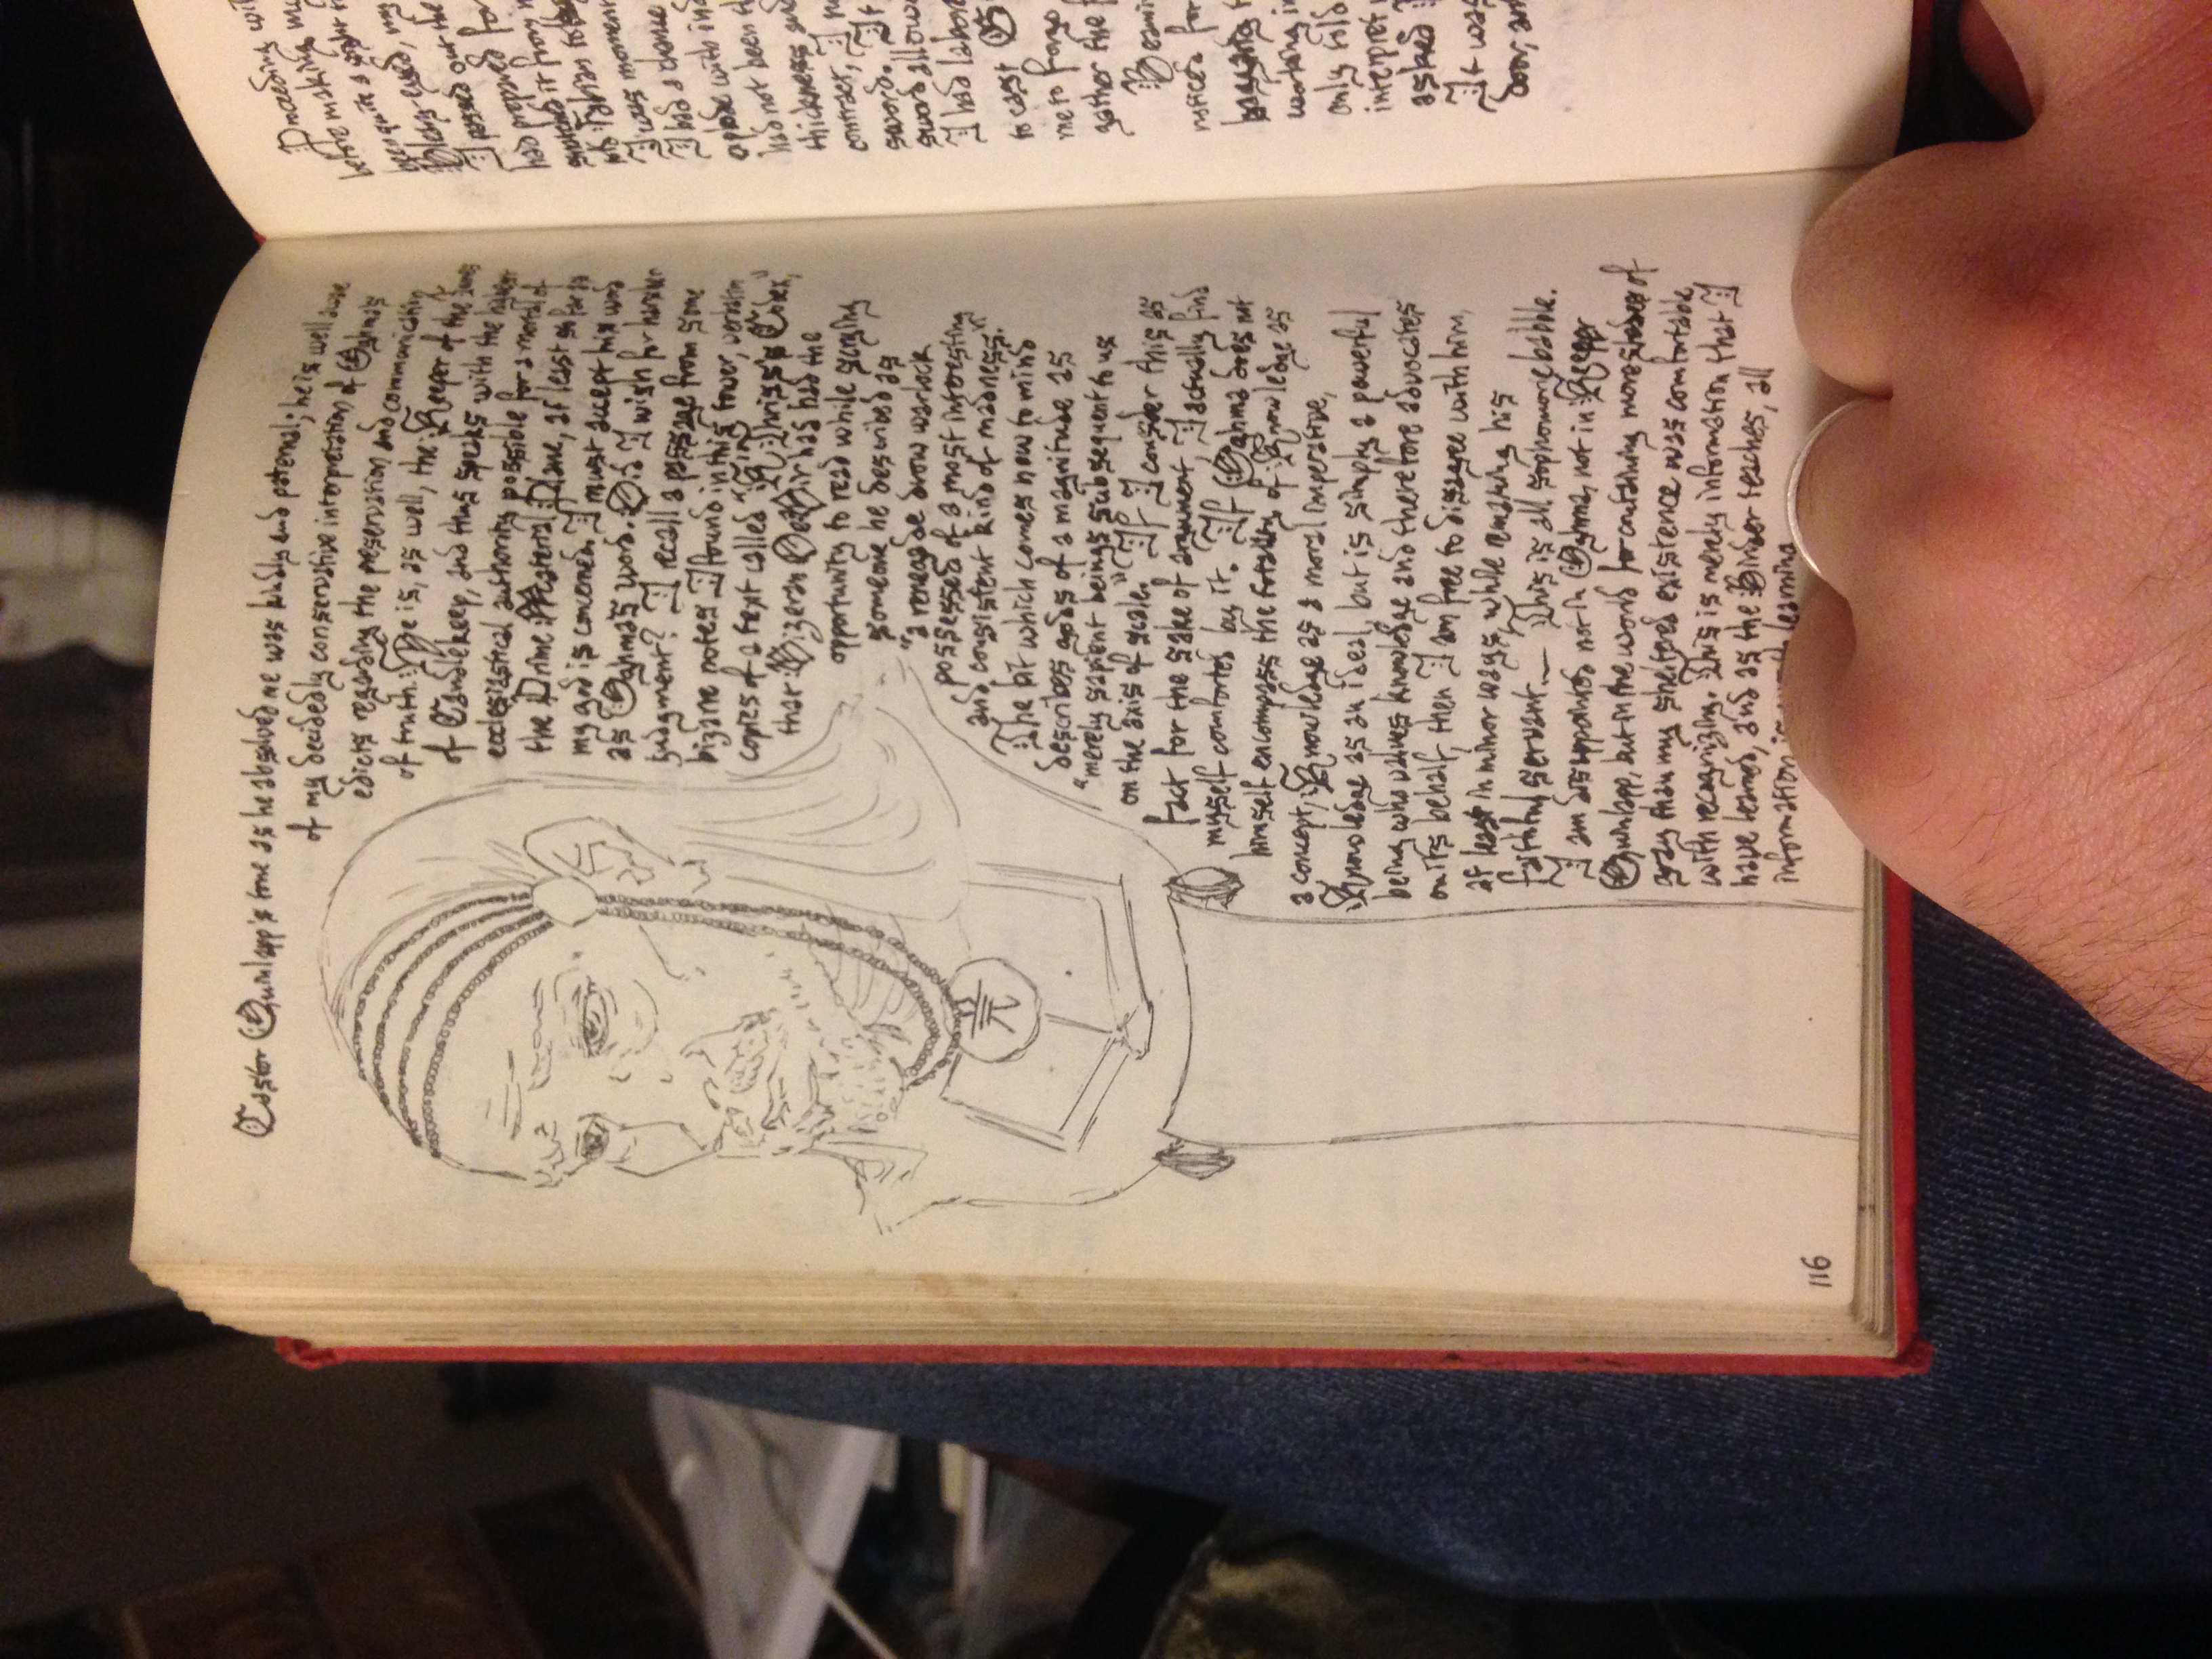 Castor Quinlapp's tone as he absolved me was kindly and paternal; he is well aware
of my decidedly conservative interpretation of Oghma's
edicts regarding the preservation and communication
of truth. He is, as well, the Keeper of the Tomes
of Candlekeep, and thus speaks with the highest
ecclesiastical authority possible for a mortal of
the Prime Material Plane, at least as far as
my god is concerned. I must accept his word
as Oghma's word. Did I wish for harsher
judgment? I recall a passage from some
bizarre notes I found in this tower, verbatim
copies of a text called "King Khriss's Codex,"
that had had the
opportunity to read while studying
someone he described as
"a renegade drow warlock
possessed of a most interesting
and consistent kind of madness."
The bit which comes now to mind
describes gods as of a magnitude as
"merely sapient beings subsequent to us
on the axis of scale." If I consider this as
fact for the sake of argument, I actually find
myself comforted by it. If Oghma does not
himself encompass the totality of Knowledge as
a concept, Knowledge as a moral imperative,
Knowledge as an ideal, but is simply a powerful
being who values knowledge and therefore advocates
on its behalf, then I am free to disagree with him,
at least in minor ways while remaining his
faithful servant. — This is all sophomore babble.
I am disappointed not in Oghma, not in Keeper
Quinlapp, but in the world for containing more shades of
gray than my sheltered existence was comfortable
with recognizing. This is merely information that I
have learned, and as the Binder teaches, all
information is learning
116
Proceeding wi
before making m
been quite a sight t
been
I passed out the
had proposed for
had it from
to
I was moment
I had a chance
with in
had not been th
thickness and
contract, I
sword. It
sword allow
I had labore
to cast
me to forgo
gather the
for
working in
only told
interpret
asked
It was
Door, an